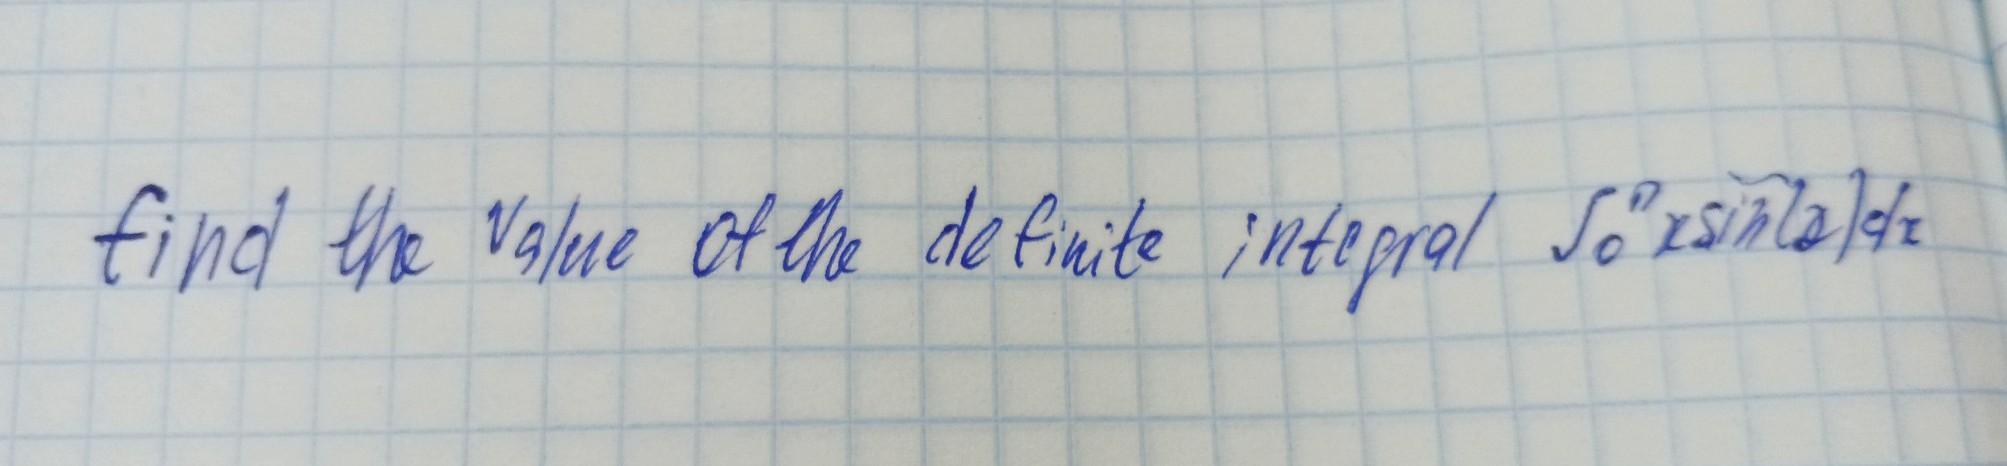 find the value of the definite integral ∫₀^π x sin(x)dx